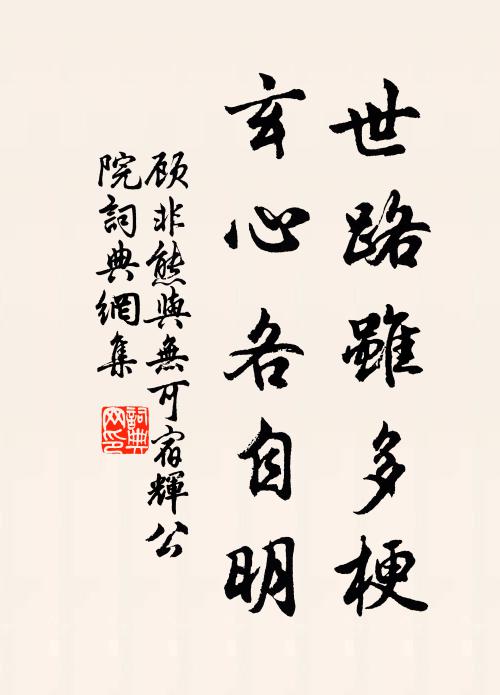 世路雖多梗
玄心各自明
顾非熊與無可宿輝公
院詞典網集
詞典
网印